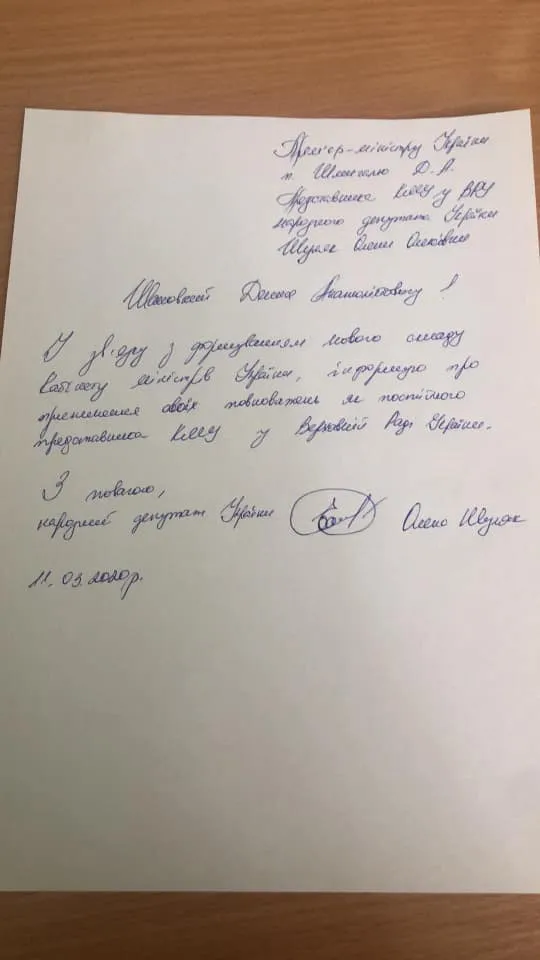 Прем'єр-міністру України
п. Шмигалю Д. А.
Представника КМУ у ВРУ
народного депутата України
Шуляк Олени Олексіївни
Шановний Денисе Анатолійовичу!
У зв'язку з формуванням нового складу
Кабінету міністрів України, інформую про
припинення своїх повноважень як постійного
представника КМУ у Верховній Раді України.
З повагою,
народний депутат України Олена Шуляк
11.03.2020р.